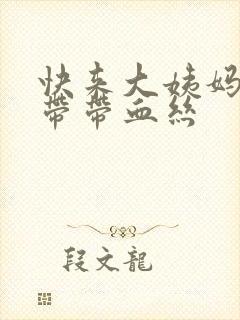 快来大姨妈
带带血丝
段文龍